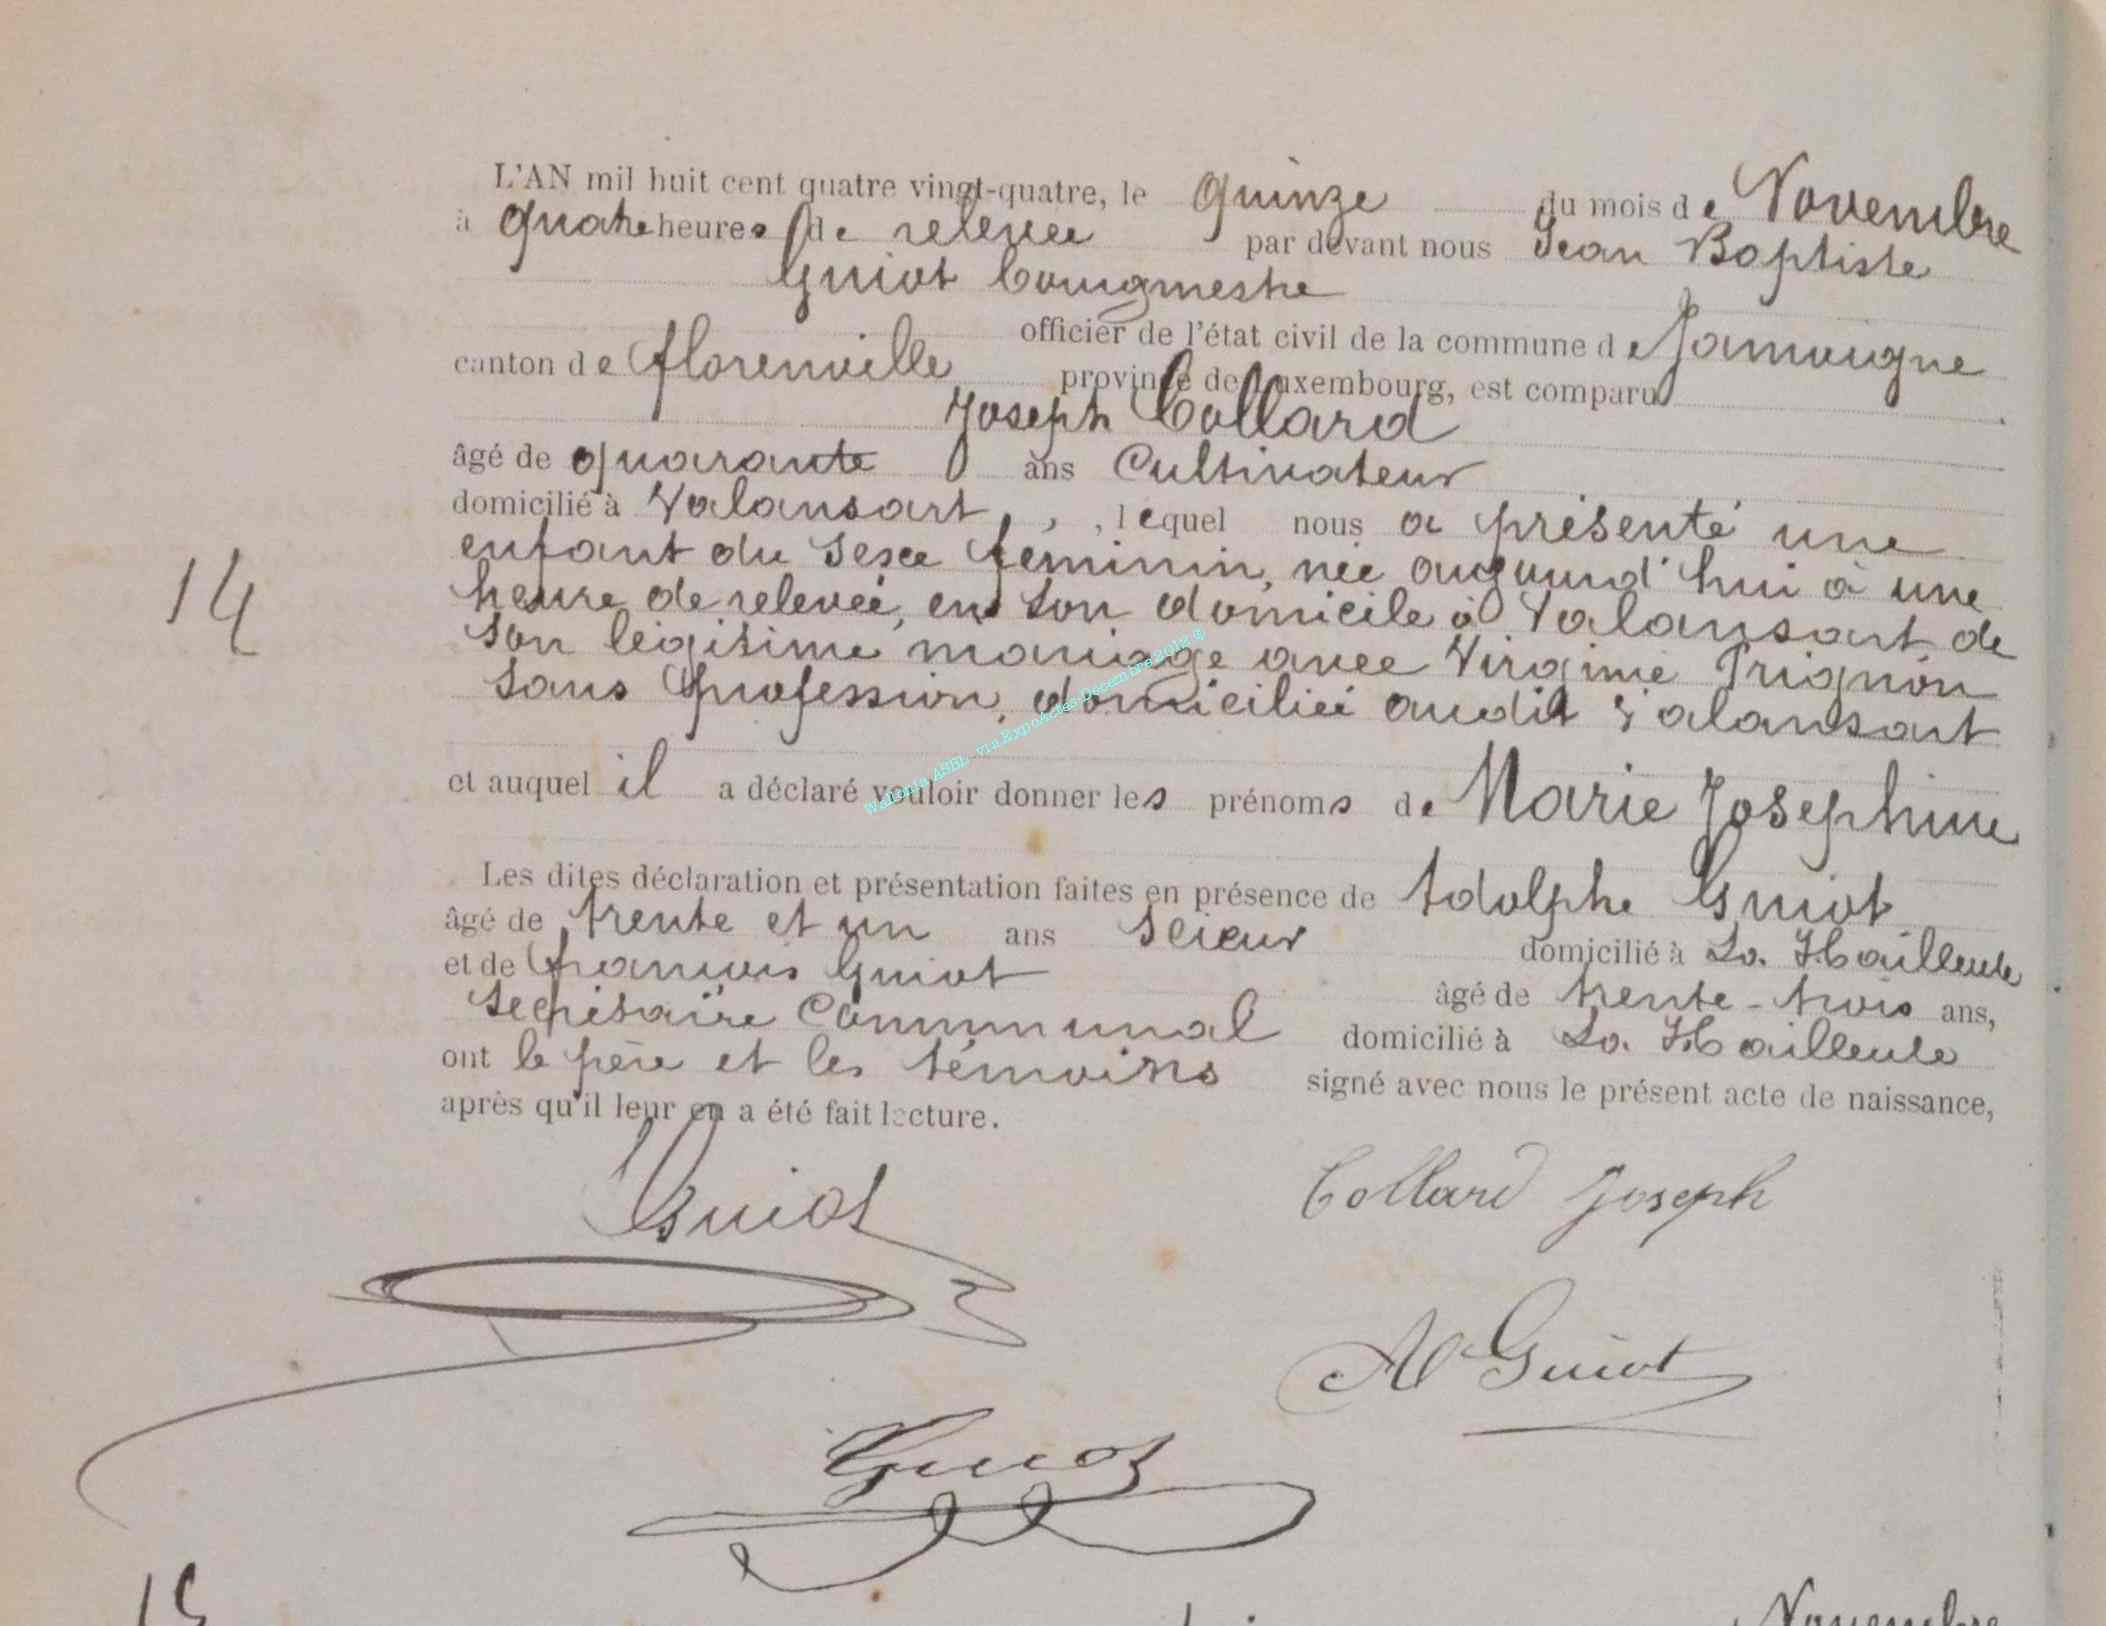 L'AN mil huit cent quatre vingt-quatre, le quinze du mois de Novembre
à quatre heures de relevée par devant nous Jean Baptiste
Guiot bourgmestre
officier de l'état civil de la commune de Jamoigne
canton de florenville province de Luxembourg, est comparu
Joseph Collard
âgé de quarante ans Cultivateur
domicilié à Valansart, lequel nous a présenté une
enfant du sexe féminin, née aujourd'hui à une
heure de relevée, en son domicile à Valansart de
son légitime mariage avec Virginie Trignon
sans profession, domiciliée audit Valansart
14
et auquel il a déclaré vouloir donner les prénoms de Marie Josephine
Wallonia ASBL - via ExpoActes Décembre 2012 ©
Les dites déclaration et présentation faites en présence de Adolphe Guiot
âgé de trente et un ans scieur domicilié à La Hailleule
et de françois Guiot âgé de trente-trois ans,
Secrétaire Communal domicilié à La Hailleule
ont le père et les témoins signé avec nous le présent acte de naissance,
après qu'il leur en a été fait lecture.
Guiot Collard Joseph
Ad Guiot
Guiot
15
Novembre